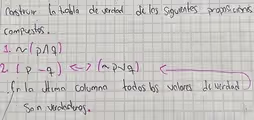 Construir la tabla de verdad de los siguientes proposiciones
compuestas.
1. ~(p∧q)
2. (p →q) <-> (~p∨q)
En la última columna todos los valores de verdad
Son verdaderos.